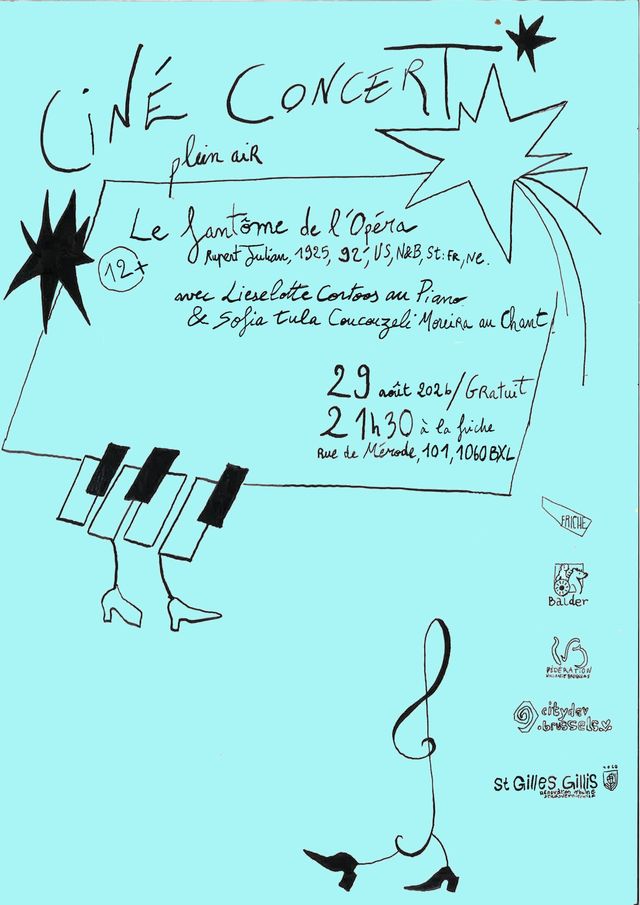 CiNÉ CONCERT
plein aiR
Le fantôme de l'Opéra
Rupert Julian, 1925, 92', US, N&B, St: FR, Ne.
12+
avec Lieselotte Cortoos au Piano
& Sofia Tula Coucouzeli Moreira au Chant
29 août 2026/GRatuit
21h30 à la friche
Rue de Mérode, 101, 1060 BXL
FRICHE
BaLder
FÉDÉRATION
WALLONIE BRUXELLES
citydev
.brussels
St Gilles Gillis